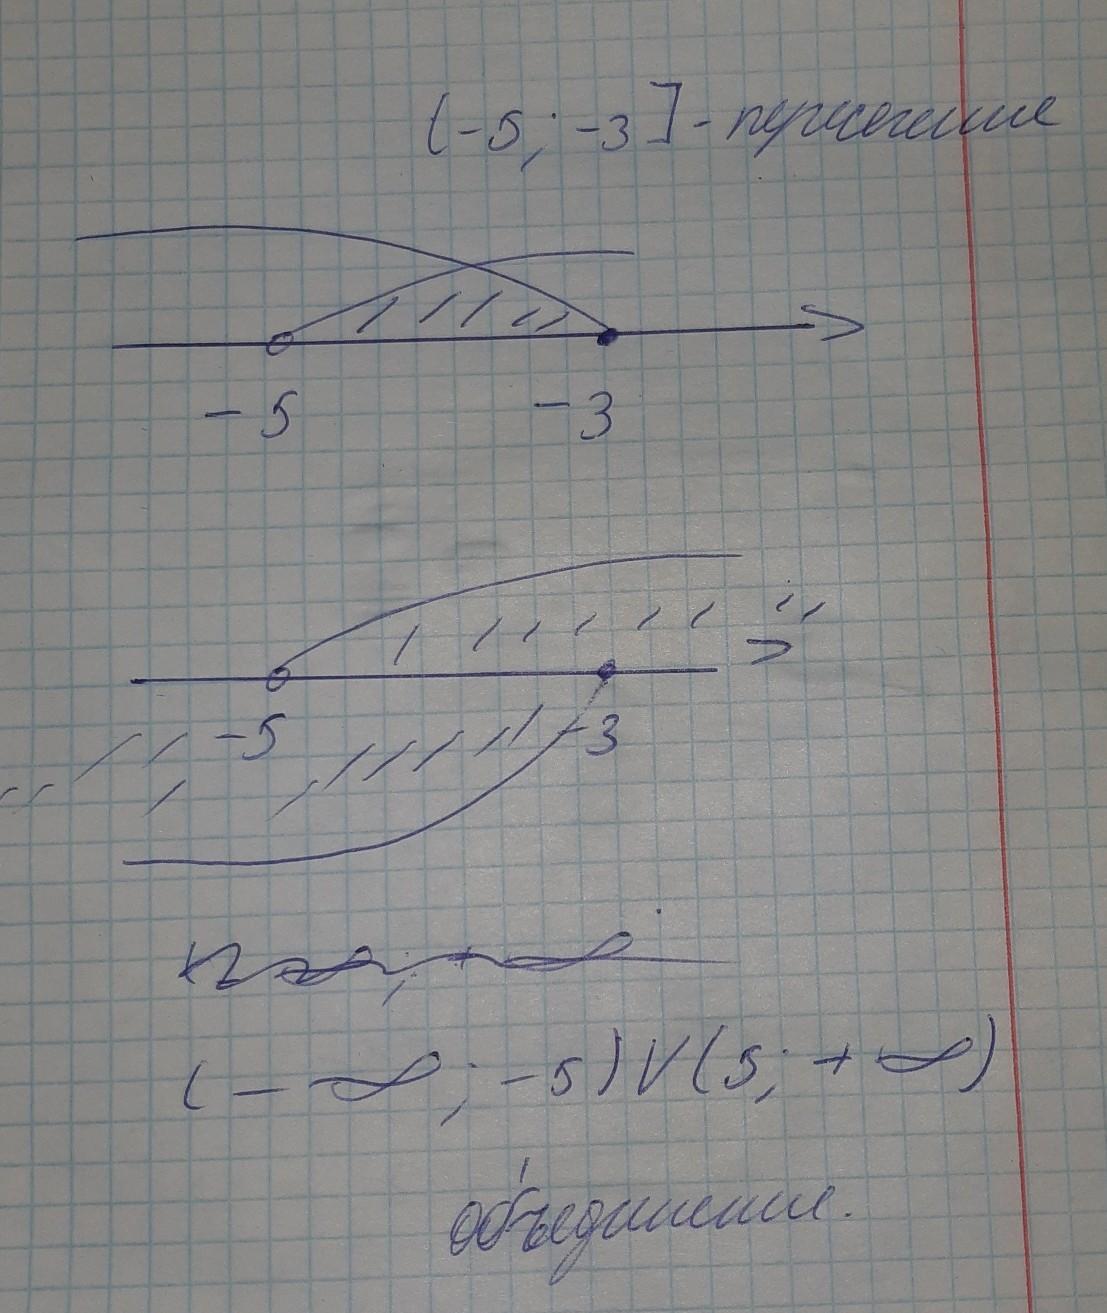 (-5; -3] - пересечение
-5 -3
-5 -3
(-∞; -5) V (5; +∞)
объединение.